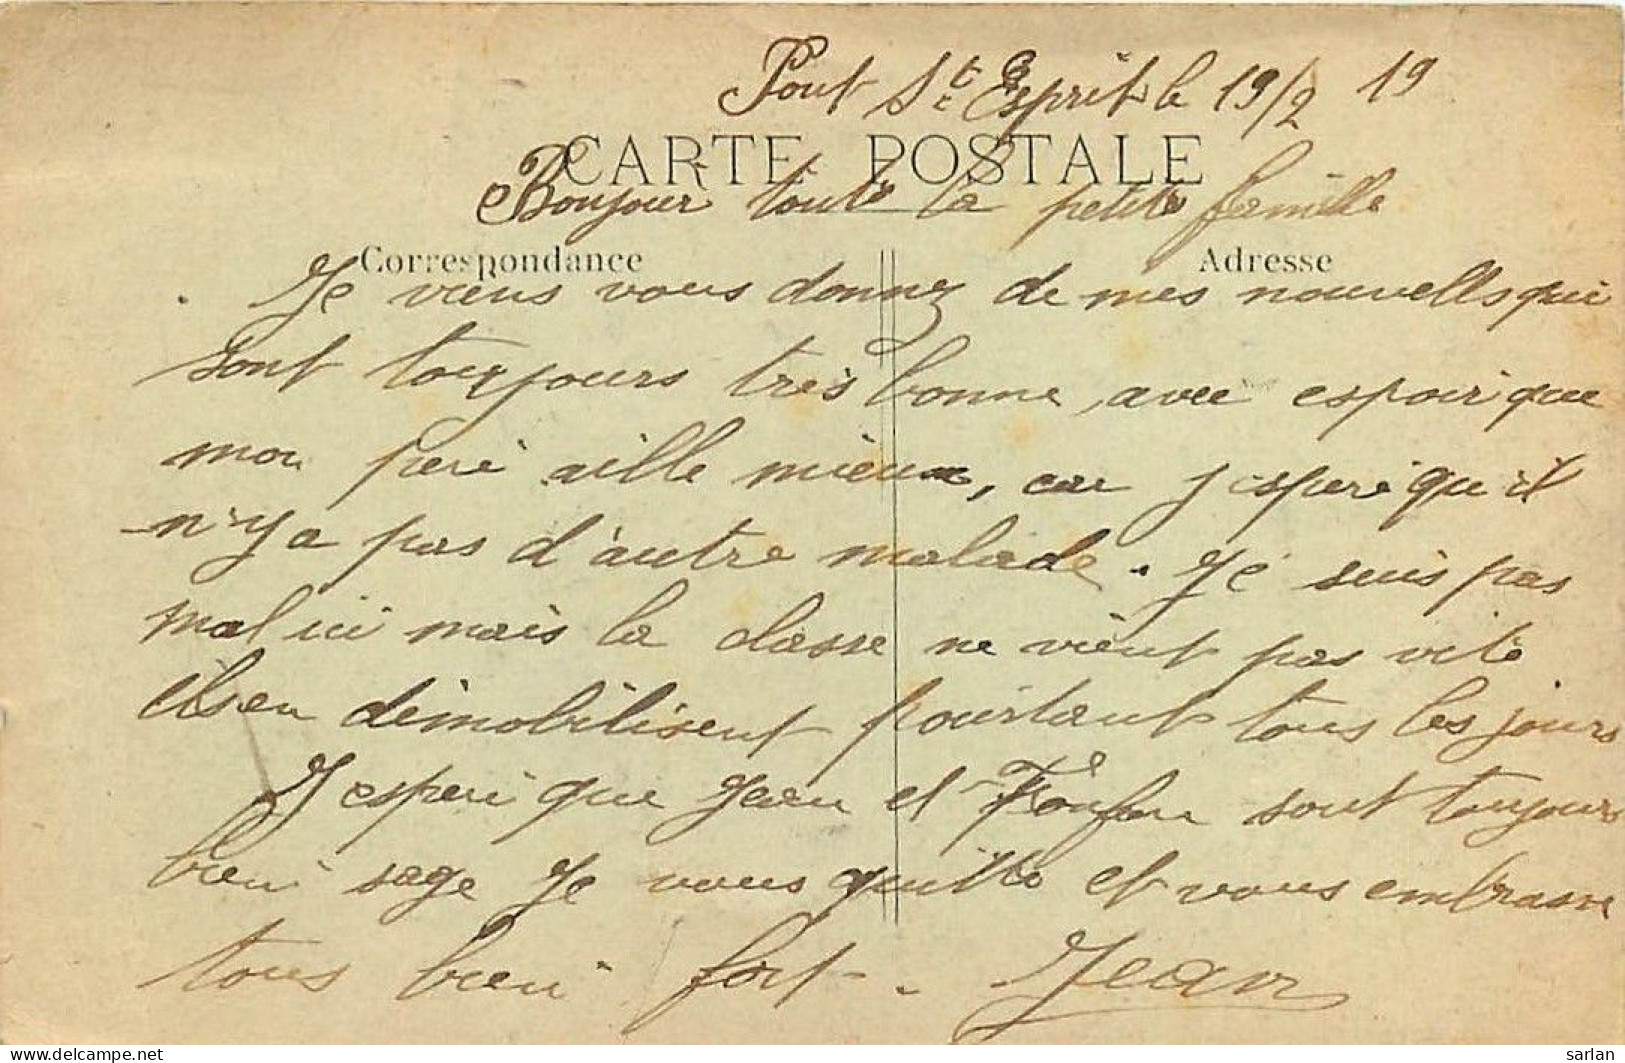 Pont St Esprit le 19/2 19
CARTE POSTALE
Bonjour toute la petite famille
Correspondance Adresse
Je viens vous donnez de mes nouvells qui
sont toujours très bonne, avec espoir que
mon père aille mieux, car j'espère qu'il
n'y a pas d'autre malade. Je suis pas
mal ici mais la classe ne vient pas vite
ils en démobilisent pourtant tous les jours
J'espère que Jean et Fonfon sont toujours
bien sage Je vous quitte et vous embrasse
tous bien fort. Jean
sarlan
delcampe.net